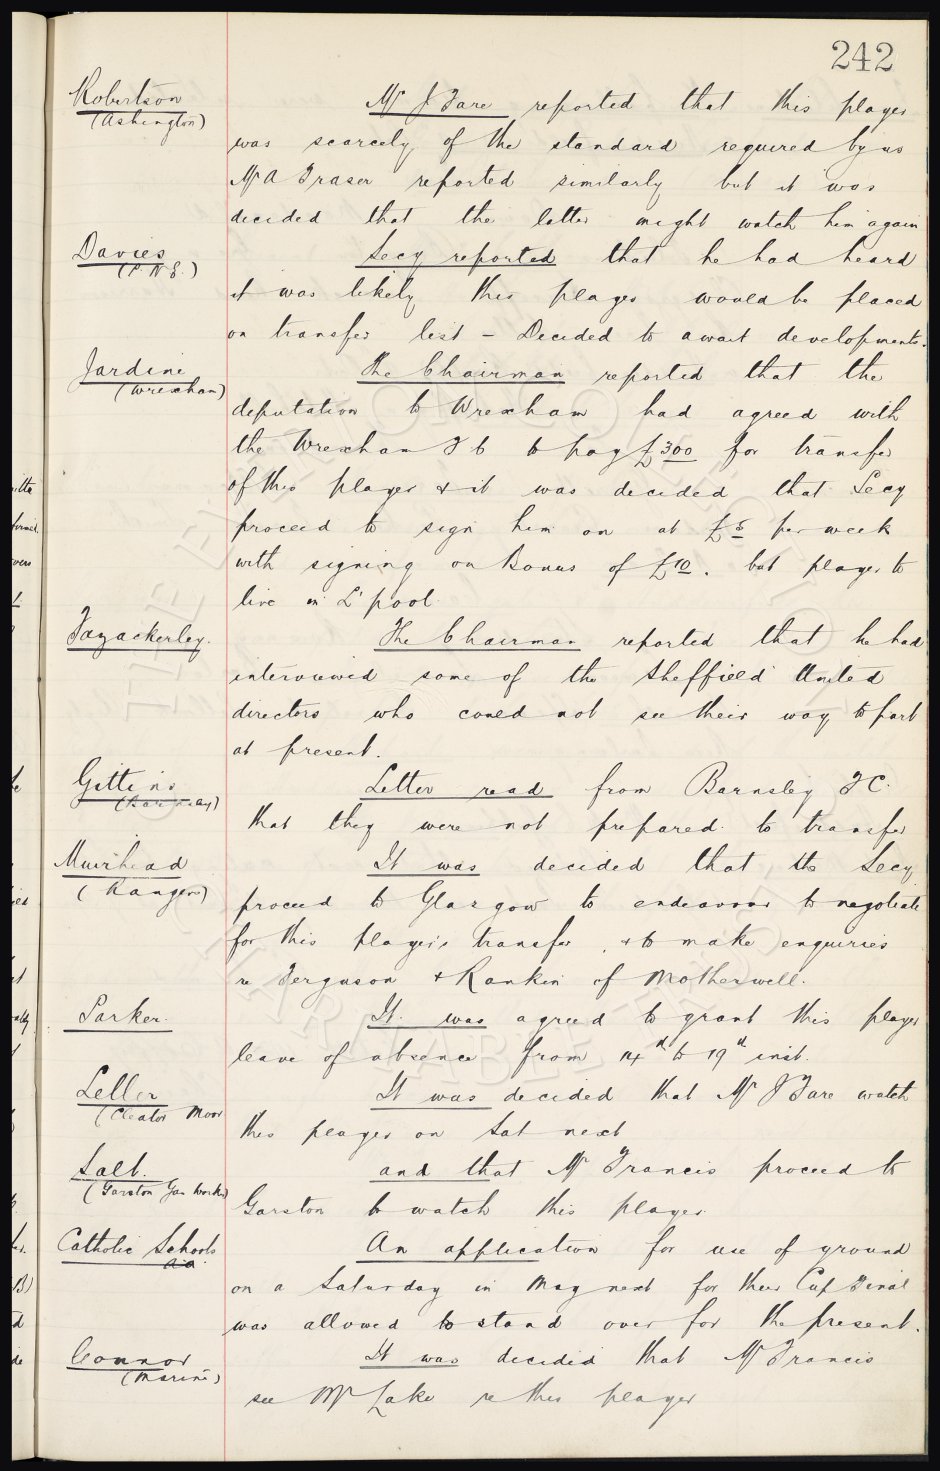 242
Robertson
(Ashington)
Mr J Fare reported that this player
was scarcely of the standard required by us
Mr A Fraser reported similarly but it was
decided that the latter might watch him again
Davies
(P.N.E.)
Secy reported that he had heard
it was likely this player would be placed
on transfer list - Decided to await developments.
Jardine
(Wrexham)
The Chairman reported that the
deputation to Wrexham had agreed with
the Wrexham F C to pay £300 for transfer
of this player & it was decided that Secy
proceed to sign him on at £5 per week
with signing on Bonus of £10. but player to
live in L'pool.
Fazackerley.
The Chairman reported that he had
interviewed some of the Sheffield United
directors who could not see their way to part
at present.
Gittins
(Barnsley)
Letter read from Barnsley F C.
that they were not prepared to transfer
Muirhead
(Rangers)
It was decided that the Secy
proceed to Glasgow to endeavour to negotiate
for this player's transfer, & to make enquiries
re Ferguson & Rankin of Motherwell.
Parker.
It was agreed to grant this player
leave of absence from 14th to 19th inst.
(Cleator Moor
It was decided that Mr J Fare watch
this player on Sat next
Salt.
(Garston Gas Works)
and that Mr Francis proceed to
Garston to watch this player.
Catholic Schools
A.A.
An application for use of ground
on a Saturday in May next for their Cup Final
was allowed to stand over for the present.
Connor
(Marine)
It was decided that Mr Francis
see Mr Lake re this player